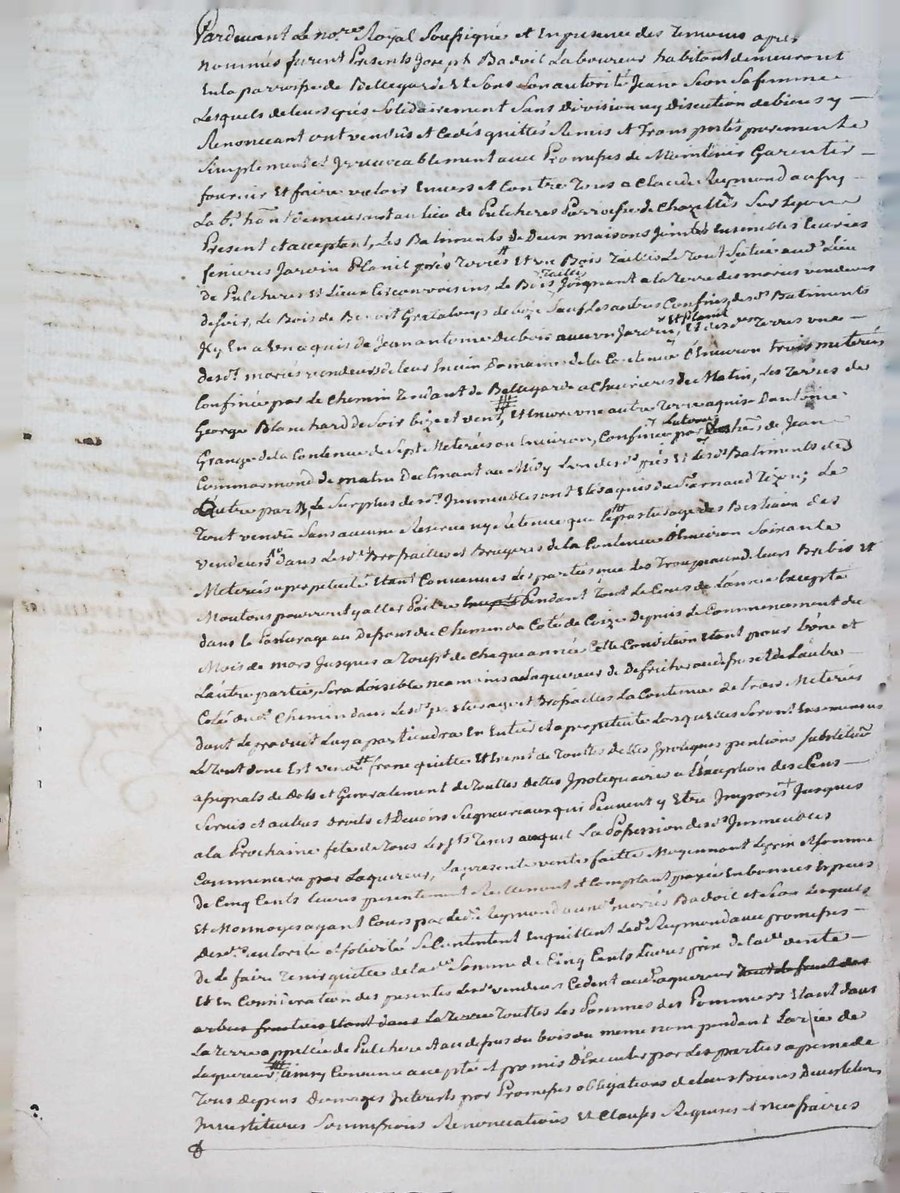 Pardevant Le no.re Royal Soussigné et En presence des Temoins apres
nommés furent Presents Joseph Badoil Laboureur habitant demeurant
En la parroisse de Bellegarde Et Sous Son autorité Jeane Sa femme
Lesquels de leurs grés Solidairement Sans division ny discution de biens y
Renoncant ont vendus et Cedés quittés Remis et Transportés purement Et
Simplement et Irrevocablement avec Promesses de Maintenir Garentir
fournir Et faire valoir Envers et Contre Tous a Claude Reymond aussy
La.b.r han.t demeurant au lieu de Pulcheres Parroisse de Chazelles Sur
Present et acceptant, Les Batiments de Deux maisons Joints Ensembles Ecuries
fenieres Jardin prés Terres Et un Bois Taillis Le Tout Scitué aud.t Lieu
de Pulcheres Et Lieux Circonvoisins Le Bois Taillis Joignant a la Terre des mariés vendeurs
de soir, Le Bois de Benoit de bize Sauf Les autres Confins, des d.ts Batiments
Il y En a Un aquis de Jean antoine Dubois avec un Jardin, Et Planil Et des d.es Terres une
desd.ts mariés vendeurs de leur Domaine de la Contenue d'Environ trois meterés
Confinée par Le Chemin Tendant de Bellegarde a Chevrieres du Matin, Les Terres de
George Blanchard de Soir bize et vent, Et Encore une autre Terre aquise d'antoine
Grange de la Contenue de Sept Meterés ou Environ, Confinée par Les de Jean
Commarmond de matin Declinant au Midy L'un desd.ts prés Et Lesd.ts Batiments de
L'autre part, Le Surplus desd.ts Immeubles ont Etés aquis du S.r Le
Tout vendu Sans aucune Reserve ny retenue que le paturage des Bestiaux des
vendeurs dans Les d.tes Brossailles et Bruyeres de la Contenue d'Environ Soixante
Meterés a perpetuité Etant Convenues Les parties que Les Troupeaux de leurs Brebis Et
Moutons pourront y aller Paitre Pendant Tout Le Cours de L'année Excepté
dans le Pasturage au Dessous du Chemin du Coté de Bize Depuis Le Commencement du
Mois de mars Jusques a Touss.t de Chaque année Cette Condition Etant pour L'une et
L'autre partie, Sera Loisible neamoins a L'aquereur de Defricher au dessus Et de L'autre
Coté dud.t Chemin dans Lesd.ts paturages et Brossailles La Contenue de trois Meterés
dont Le produit Luy apartiendra En Entier Et a perpetuité Lorsqu'elles Seront Ensemencées
Le Tout donc Est vendu franc quitte Et Exent de Toutes dettes Ipoteques pentions substitution
assignals de Dots et Generalement de Toutes Dettes Ipotequaires a L'Exception des Cens
Servis et autres Droits et Devoirs Seigneuriaux qui Peuvent y Etre Imposés Jusques
a la Prochaine fete de Tous Les S.ts Tems auquel La Possession des d.ts Immeubles
Commencera par Laquereur, La presente vente faitte Moyennant Le prix Et Somme
de Cinq Cents Livres presentement Reellement et Comptant payée En bonnes Especes
Et Monnoyes ayant Cours par led.t Reymond aux d.ts mariés Badoil et Lesquels
Desd.te autorité Et Solidité Se Contentent En quittent Led.t Reymond avec promesses
de le faire Tenir quitte de lad.te Somme de Cinq Cents Livres prix de lad.te vente
Et En Consideration des presentes Lesd.ts vendeurs Cedent aud.t aquereur Tout Le fruit des
arbres fruitiers Etant dans La Terre Touttes Les Pommes des Pommiers Etant dans
La Terre appellée de Pulchere Et au dessus du bois du meme nom pendant La vie de
Laquereur ainsy Convenu accepté et promis D'Executer par Les parties a peine de
Tous Depens Dommages Interests par Promesses obligations de leurs Biens Devestitures
Investitures Soumissions Renonciations Et Clauses Requises et necessaires